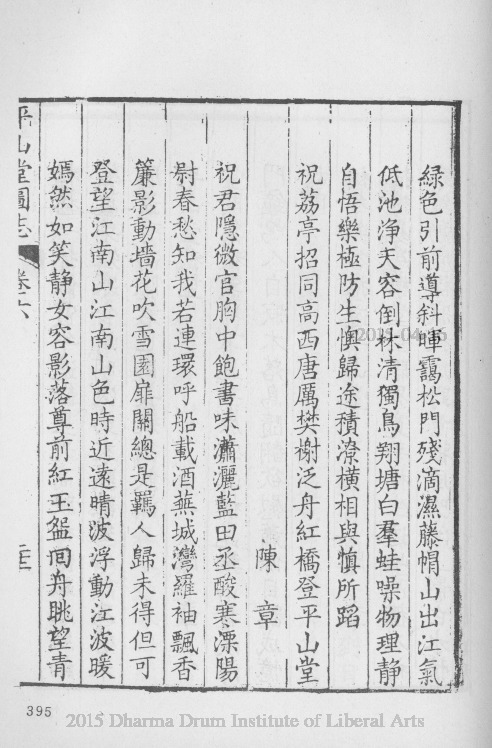 綠色引前導斜暉靄松門殘滴濕藤帽山出江氣
低池净天容倒林清獨鳥翔塘白羣蛙噪物理靜
自悟樂極防生懊歸途積潦橫相與慎所蹈
祝荔亭招同高西唐厲樊榭泛舟紅橋登平山堂
陳章
祝君隱微官胸中飽書味瀟灑藍田丞酸寒溧陽
尉春愁知我若連環呼船載酒蕪城灣羅袖飄香
簾影動墻花吹雪園扉關總是羈人歸未得但可
登望江南山江南山色時近遠晴波浮動江波暖
嫣然如笑靜女容影落尊前紅玉盌回舟眺望青
平山堂圖志
卷六
395
2015 Dharma Drum Institute of Liberal Arts